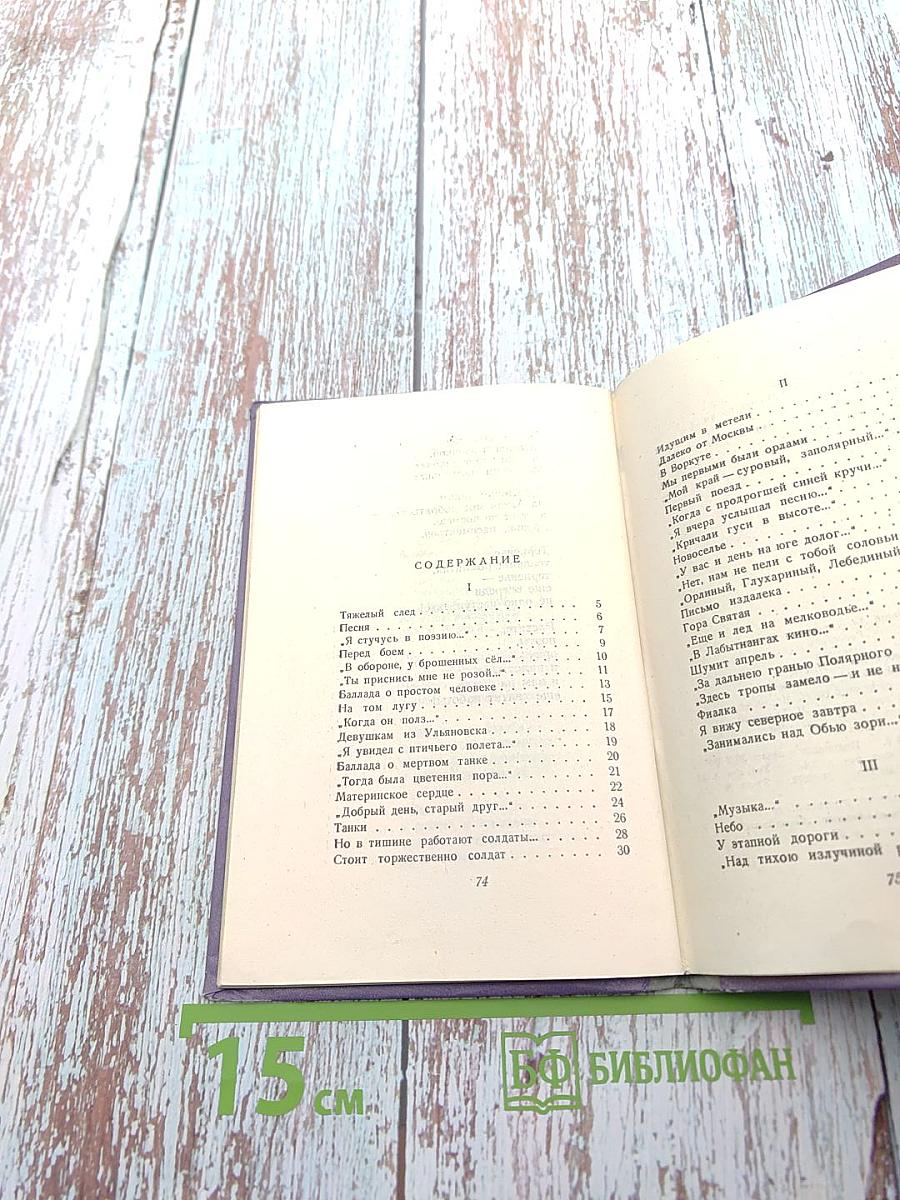 СОДЕРЖАНИЕ
I
Тяжелый след . . . . . . . . . . . . . . 5
Песня . . . . . . . . . . . . . . . . . 6
„Я стучусь в поэзию...“ . . . . . . . . . 7
Перед боем . . . . . . . . . . . . . . . 9
„В обороне, у брошенных сёл...“ . . . . . . 10
„Ты приснись мне не розой...“ . . . . . . . 11
Баллада о простом человеке . . . . . . . . 13
На том лугу . . . . . . . . . . . . . . 15
„Когда он полз...“ . . . . . . . . . . . . 17
Девушкам из Ульяновска . . . . . . . . . . 18
„Я увидел с птичьего полета...“ . . . . . . 19
Баллада о мертвом танке . . . . . . . . . 20
„Тогда была цветения пора...“ . . . . . . . 21
Материнское сердце . . . . . . . . . . . 22
„Добрый день, старый друг...“ . . . . . . . 24
Танки . . . . . . . . . . . . . . . . . 26
Но в тишине работают солдаты... . . . . . . 28
Стоит торжественно солдат . . . . . . . . 30
74
II
Идущим в метели . . . . . . . . .
Далеко от Москвы . . . . . . . . .
В Воркуте . . . . . . . . . . . .
Мы первыми были орлами . . . . . .
„Мой край — суровый, заполярный...“ .
Первый поезд . . . . . . . . . . .
„Когда с продрогшей синей кручи...“
„Я вчера услышал песню...“ . . . .
„Кричали гуси в высоте...“ . . . .
Новоселье . . . . . . . . . . . .
„У вас и день на юге долог...“ . . .
„Нет, нам не пели с тобой соловьи
„Орлиный, Глухариный, Лебединый
Письмо издалека . . . . . . . . .
Гора Святая . . . . . . . . . . .
„Еще и лед на мелководье...“ . . . .
„В Лабытнангах кино...“ . . . . . .
Шумит апрель . . . . . . . . . . .
„За дальнею гранью Полярного
„Здесь тропы замело — и не н
Фиалка . . . . . . . . . . . . .
Я вижу северное завтра . . . . . .
„Занимались над Обью зори...“
III
„Музыка...“ . . . . . . . . . . .
Небо . . . . . . . . . . . . . .
У этапной дороги . . . . . . . . .
„Над тихою излучиной
75
15 см
БФ БИБЛИОФАН